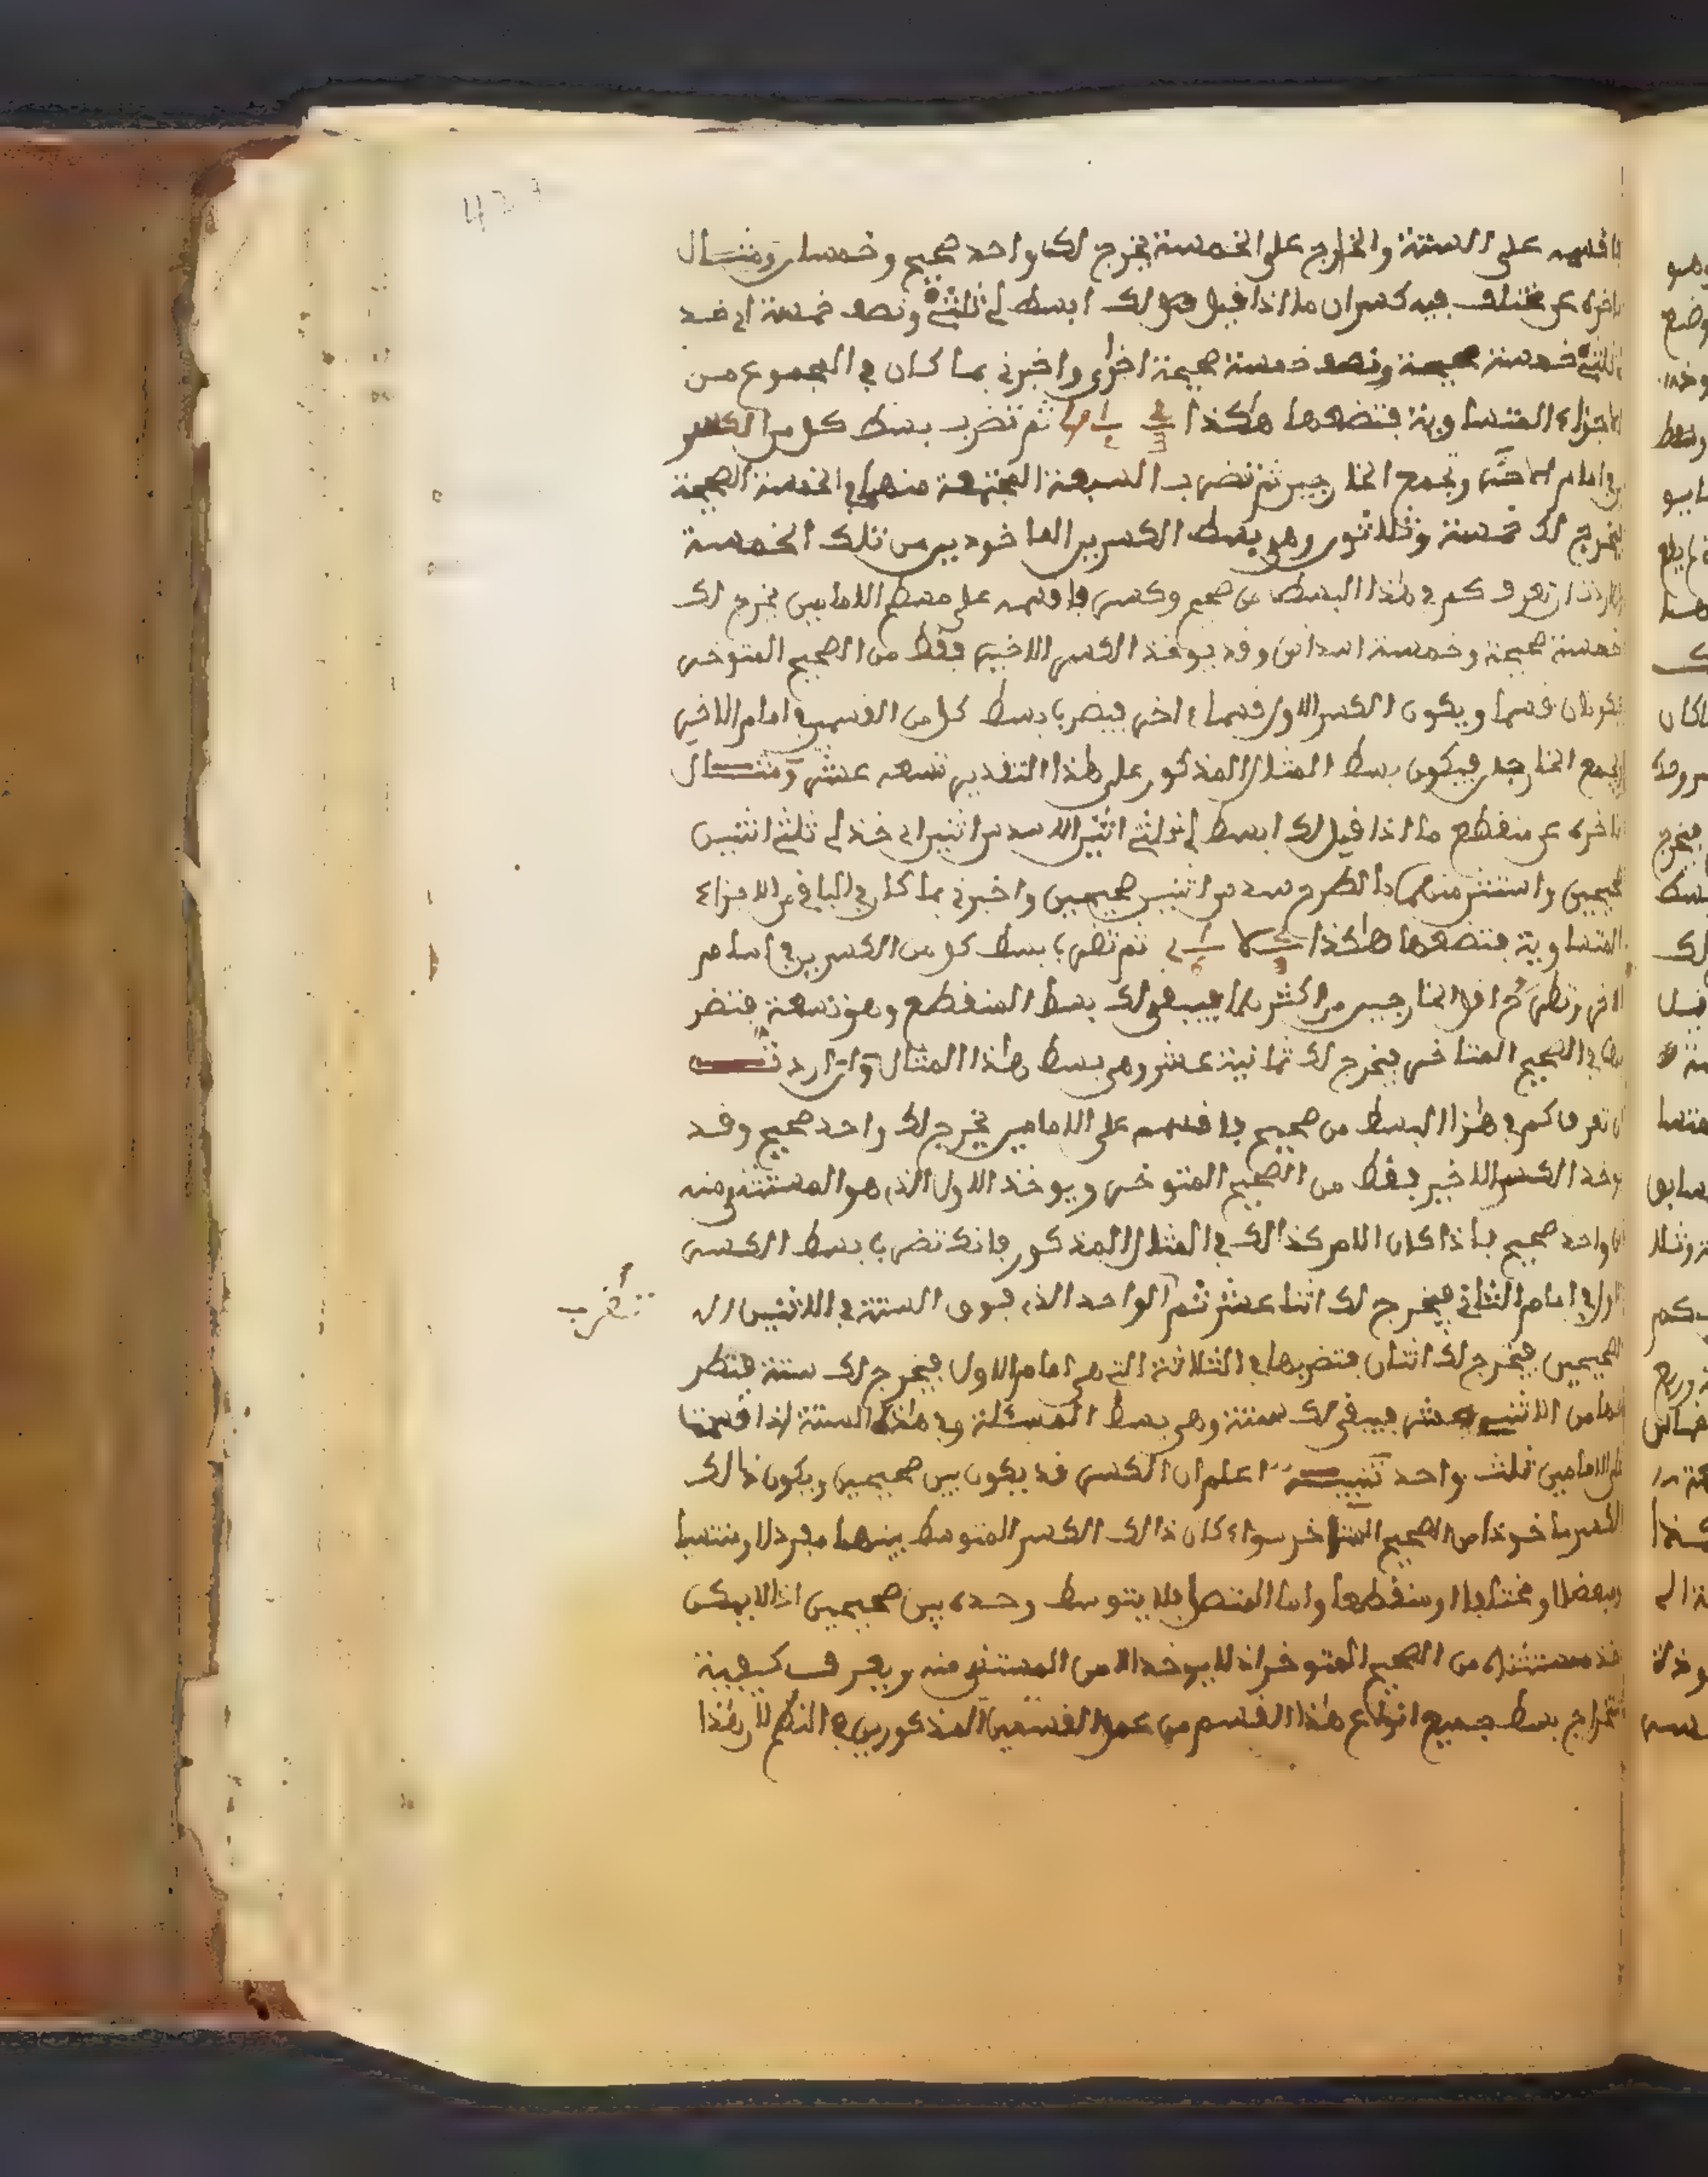 فاقسمه على الستة والخارج على الخمسة يخرج لك واحد صحيح وخمسا ومثال
تاخره عن مختلف فيه كسران ما اذا قيل لك ابسط لي ثلثي ونصف خمسة اي خذ
ثلثي خمسة صحيحة ونصف خمسة صحيحة اخرى واخبرني بما كان في المجموع من
الاجزاء المتساوية فتضعها هاكذا ثم تضرب بسط كل من الكسر
في امام الاخر وتجمع الخارجين ثم تضرب السبعة المجتمعة منهما في الخمسة الصحيحة
يخرج لك خمسة وثلاثون وهو بسط الكسرين الماخوذين من تلك الخمسة
اردت ان تعرف كم في هذا البسط من صحيح وكسر فاقسمه على مسطح الامامين يخرج لك
خمسة صحيحة وخمسة اسداس وقد يوخذ الكسر الاخير فقط من الصحيح المتوخر
فيكونان قسما ويكون الكسر الاول قسما ءاخر فيضرب بسط كل من القسمين في امام الاخر
ويجمع الخارجان فيكون بسط المثال المذكور على هذا التقدير تسعة عشر ومثال
تاخره عن منقطع ما اذا قيل لك ابسط لي ثلثي اثنين الا سدس اثنين اي خذ لي ثلثي اثنين
صحيحين واستثن منهما بالطرح سدس اثنين صحيحين واخبرني بما كان في الباقي من الاجزاء
المتساوية فتضعها هاكذا ثم تضرب بسط كل من الكسرين في امام
الاخر وتطرح اقل الخارجين من اكثرهما فيبقى لك بسط المنقطع وهو تسعة فتضر
بها في الصحيح المتاخر فيخرج لك ثمانية عشر وهي بسط هذا المثال وان اردت
ان تعرف كم في هذا البسط من صحيح فاقسمه على الامامين يخرج لك واحد صحيح وقد
يوخذ الكسر الاخير فقط من الصحيح المتوخر ويوخذ الاول الذي هو المستثنى منه
من واحد صحيح فاذا كان الامر كذالك في المثال المذكور فانك تضرب بسط الكسر
الاول في امام الثاني فيخرج لك اثنا عشر ثم الواحد الذي فوق الستة في الاثنين
تضرب
الصحيحين فيخرج لك اثنان فتضربها في الثلاثة التي هي امام الاول فيخرج لك ستة فتطر
حها من الاثني عشر فيبقى لك ستة وهي بسط المسئلة وفي هذه الستة اذا قسمتها
على الامامين ثلث واحد تنبيه اعلم ان الكسر قد يكون بين صحيحين ويكون ذالك
الكسر ماخوذا من الصحيح المتاخر سواء كان ذالك الكسر المتوسط بينهما مفردا او منتسبا
او مبعضا او مختلفا او منقطعا واما المتصل فلا يتوسط وحده بين صحيحين اذ لا يمكن
اخذ مستثناه من الصحيح المتوخر اذ لا يوخذ الا من المستثنى منه ويعرف كيفية
استخراج بسط جميع انواع هذا القسم من عمل القسمين المذكورين في النظم لان هذا